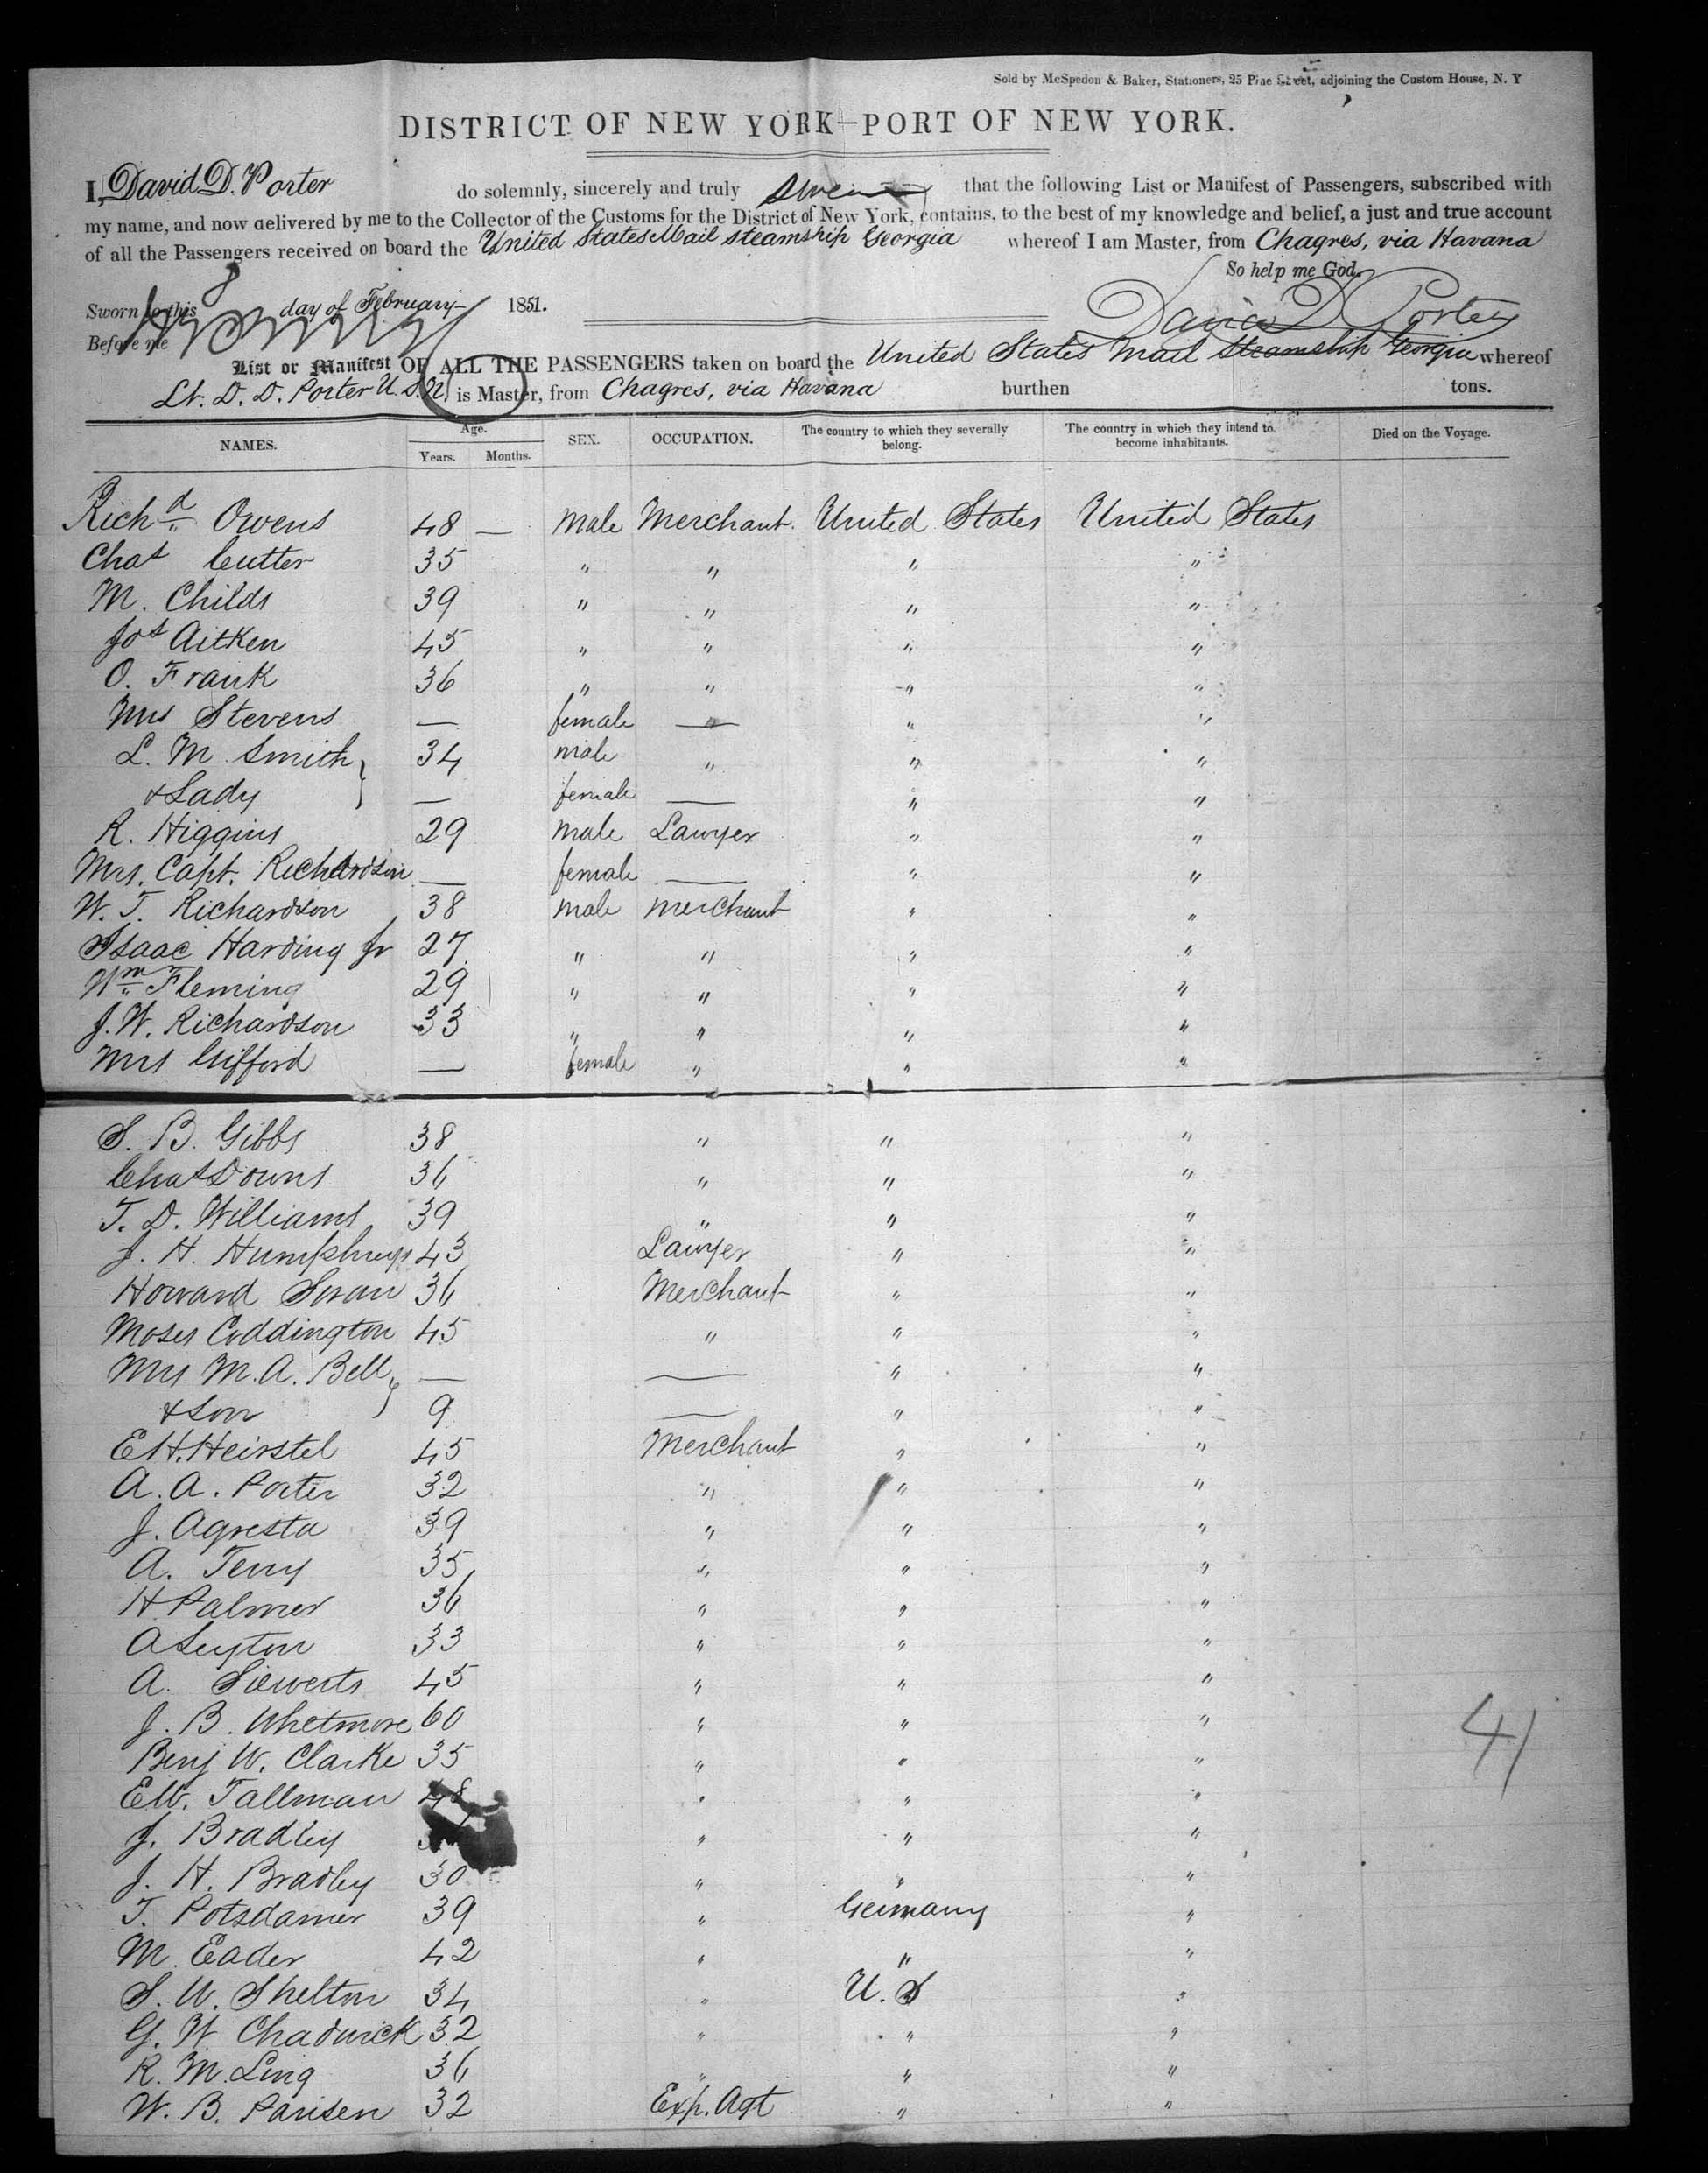 Sold by McSpedon & Baker, Stationers, 25 Pine Street, adjoining the Custom House, N. Y
DISTRICT OF NEW YORK—PORT OF NEW YORK.
I, David D. Porter do solemnly, sincerely and truly swear that the following List or Manifest of Passengers, subscribed with
my name, and now delivered by me to the Collector of the Customs for the District of New York, contains, to the best of my knowledge and belief, a just and true account
of all the Passengers received on board the United States Mail steamship Georgia whereof I am Master, from Chagres, via Havana
So help me God.
Sworn to this 8 day of February 1851.
David D Porter
Before me
List or Manifest OF ALL THE PASSENGERS taken on board the United States Mail Steamship Georgia whereof
Lt. D. D. Porter U.S.N. is Master, from Chagres, via Havana burthen tons.
NAMES. Age. Years. Months. SEX. OCCUPATION. The country to which they severally belong. The country in which they intend to become inhabitants. Died on the Voyage.
Richd Owens 48 — Male Merchant. United States United States
Chas Cutter 35 " " " "
M. Childs 39 " " " "
Jos Aitken 45 " " " "
O. Frank 36 " " " "
Mrs Stevens — female — " "
L. M. Smith 34 male " " "
& Lady — female — " "
R. Higgins 29 male Lawyer " "
Mrs. Capt. Richardson — female — " "
W. T. Richardson 38 male merchant " "
Isaac Harding Jr 27 " " " "
Wm Fleming 29 " " " "
J. W. Richardson 33 " " " "
Mrs Gifford — female " " "
S. B. Gibbs 38 " " "
Chas Downs 36 " " "
T. D. Williams 39 " " "
J. H. Humphreys 43 Lawyer " "
Howard Swan 36 Merchant " "
Moses Coddington 45 " " "
Mrs M. A. Bell — — " "
& Son 9 — " "
E H. Heirstel 45 Merchant " "
A. A. Porter 32 " " "
J. Agresta 39 " " "
A. Terry 35 " " "
H Palmer 36 " " "
A 33 " " "
A. Siewerts 45 " " "
J. B. Whetmore 60 " " "
Benj W. Clarke 35 " " "
E W. Tallman 48 " " "
J. Bradley " " "
J. H. Bradley 30 " " "
T. Potsdamer 39 " Germany "
M. Eader 42 " " "
S. W. Shelton 34 " U. S "
G. W Chadwick 32 " " "
R. M. Ling 36 " " "
W. B. Parisen 32 Exp. Agt " "
41